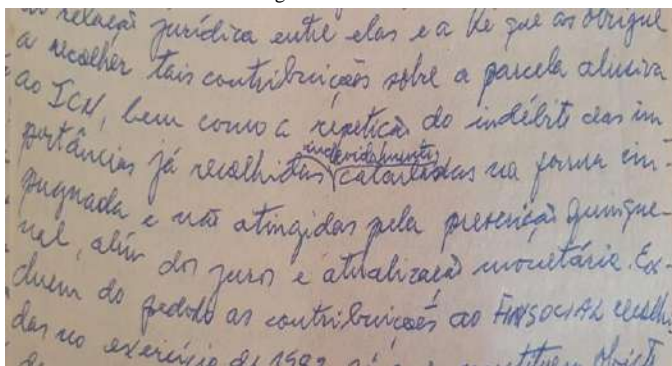 relação jurídica entre elas e a Ré que as obrigue
a recolher tais contribuições sobre a parcela alusiva
ao ICM, bem como a repetição do indébito das im
portâncias já recolhidas
indevidamente
na forma im-
pugnada e não atingidas pela prescrição quinque
nal, além dos juros e atualização monetária. Ex-
cluem do pedido as contribuições ao FINSOCIAL recolhi
das no exercício de 1982